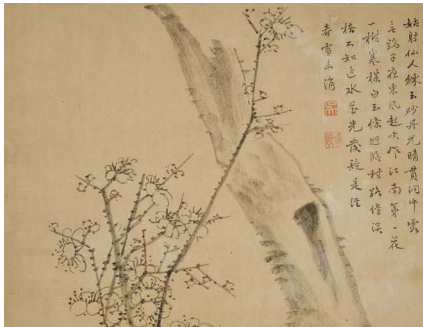 姑射仙人鍊玉砂丹光晴貫洞中霞
無端半夜東風起吹作江南第一花
一樹寒梅白玉條迥臨村路傍溪
橋不知近水花先發疑是經
春雪未消